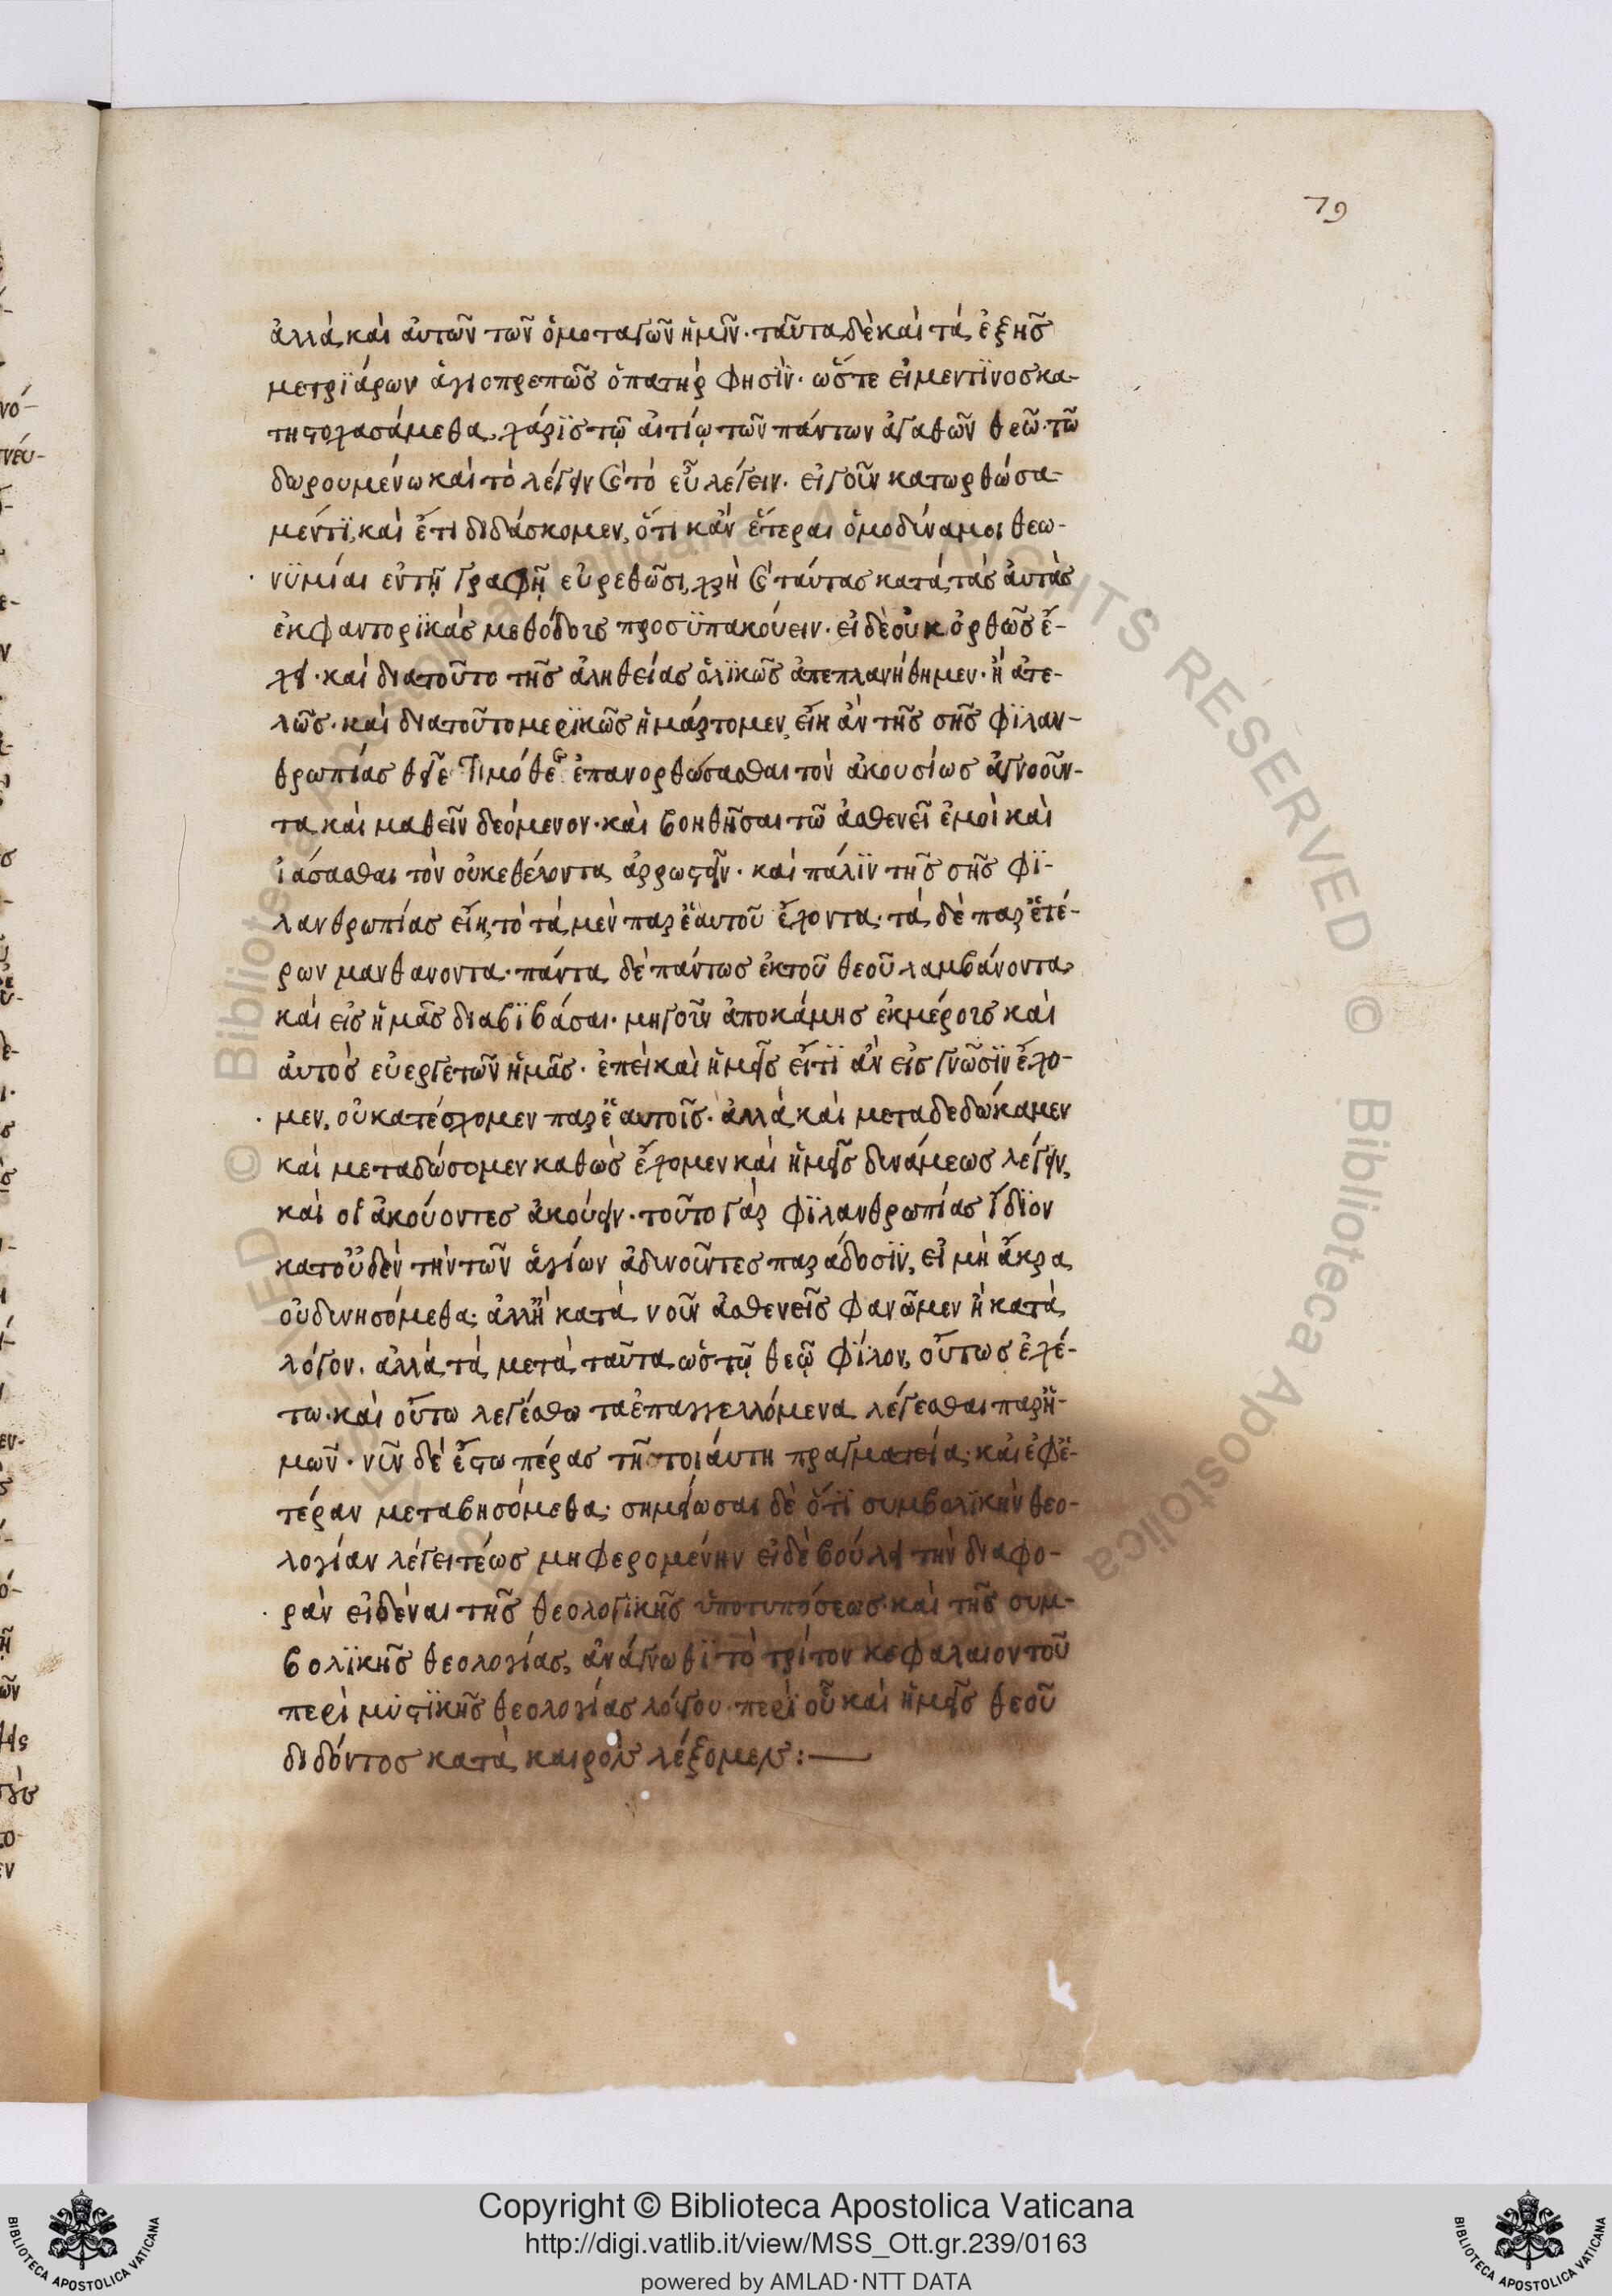 79
ἀλλὰ καὶ ἀυτῶν τῶν ὁμοταγῶν ἡμῖν· ταῦτα δὲ καὶ τὰ ἐξῆσ
μετριάρων ἁγιοπρεπῶσ ὁ πατήρ φησϊν· ὥστε εἰ μεν τϊνοσ κα-
τηστοχασάμεθα, χάρϊσ τῷ αἰτίῳ τῶν πάντων ἀγαθῶν θεῶ· τῶ
δωρουμένω καὶ τὸ λέγειν καὶ τὸ εὖ λέγειν· εἰ γοῦν κατωρθώσα-
μέν τϊ, καὶ ἔτι διδάσκομεν, ὅτι κἂν ἕτεραι ὁμοδύναμοι θεω-
νϋμίαι ἐν τῇ γραφῇ εὑρεθῶσι, χρὴ καὶ ταύτασ κατὰ τὰσ ἀυτὰσ
ἐκφαντορϊκὰσ μεθόδοισ προσϋπακούειν· εἰ δὲ οὐκ ὀρθῶσ ἔ-
χει· καὶ διατοῦτο τῆσ ἀληθείασ ὁλϊκῶσ ἀπεπλανήθημεν· ἢ ἀτε-
λῶσ· καὶ διατοῦτο μερϊκῶσ ἡμάρτομεν, εἴη ἂν τῆσ σῆσ φϊλαν-
θρωπίασ θεῖε Τιμόθεε ἐπανορθώσασθαι τὸν ἀκουσίωσ ἀγνοοῦν-
τα καὶ μαθεῖν δεόμενον· καὶ βοηθῆσαι τῶ ἀσθενεῖ ἐμοὶ καὶ
ἰάσασθαι τὸν οὐκ εθέλοντα ἀρρωστεῖν· καὶ πάλϊν τῆσ σῆσ φϊ-
λανθρωπίασ εἴη, τὸ τὰ μὲν παρ ἑαυτοῦ ἔχοντα· τὰ δὲ παρ ἑτέ-
ρων μανθανοντα· πάντα δὲ πάντωσ ἐκ τοῦ θεοῦ λαμβάνοντα
καὶ εἰσ ἡμᾶσ διαβϊβάσαι· μὴ γοῦν ἀποκάμησ ἐκμέροισ καὶ
ἀυτὸσ εὐεργετῶν ἡμᾶσ· ἐπεὶ καὶ ἡμεῖσ εἴ τϊ ἂν εἰσ γνῶσϊν ἔχο-
μεν, οὐ κατέσχομεν παρ ἑαυτοῖσ· ἀλλὰ καὶ μεταδεδώκαμεν
καὶ μεταδώσομεν καθὼσ ἔχομεν καὶ ἡμεῖσ δυνάμεωσ λέγειν,
καὶ οἱ ἀκούοντεσ ἀκούειν· τοῦτο γὰρ φϊλανθρωπίασ ἴδϊον
κατ οὐδὲν τὴν τῶν ἁγίων ἀδικοῦντεσ παράδοσϊν, εἰ μὴ ἄκρα
οὐ δυνησόμεθα· ἀλλ ἢ κατὰ νοῦν ἀσθενεῖσ φανῶμεν ἢ κατὰ
λόγον. ἀλλὰ τὰ μετὰ ταῦτα ὡσ τῷ θεῷ φϊλον, οὕτωσ ἐχέ-
τω· καὶ οὕτω λεγέσθω τα ἐπαγγελλόμενα λέγεσθαι παρ ἡ-
μῶν· νῦν δὲ ἔστω πέρασ τῆ τοιάυτη πραγματεία· καὶ ἐφ ἑ-
τέραν μεταβησόμεθα· σημείωσαι δὲ ὅτϊ συμβολϊκὴν θεο-
λογίαν λέγει τέωσ μὴ φερομένην εἰ δὲ βούλει τὴν διαφο-
ρὰν εἰδέναι τῆσ θεολογϊκῆσ ὑποτυπόσεωσ καὶ τῆσ συμ-
βολϊκῆσ θεολογίασ, ἀνάγνωθϊ τὸ τρίτον κεφαλαιον τοῦ
περὶ μυστϊκῆσ θεολογίασ λόγου· περὶ οὗ καὶ ἡμεῖσ θεοῦ
διδόντοσ κατὰ καιρὸν λέξομεν :—
Copyright © Biblioteca Apostolica Vaticana
http://digi.vatlib.it/view/MSS_Ott.gr.239/0163
powered by AMLAD·NTT DATA